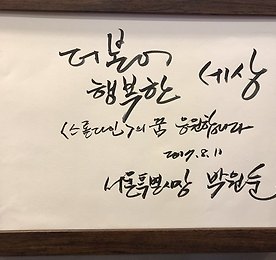 더불어
행복한 세상
<스론다인>의 꿈 응원합니다
2017.8.11
서울특별시장 박원순